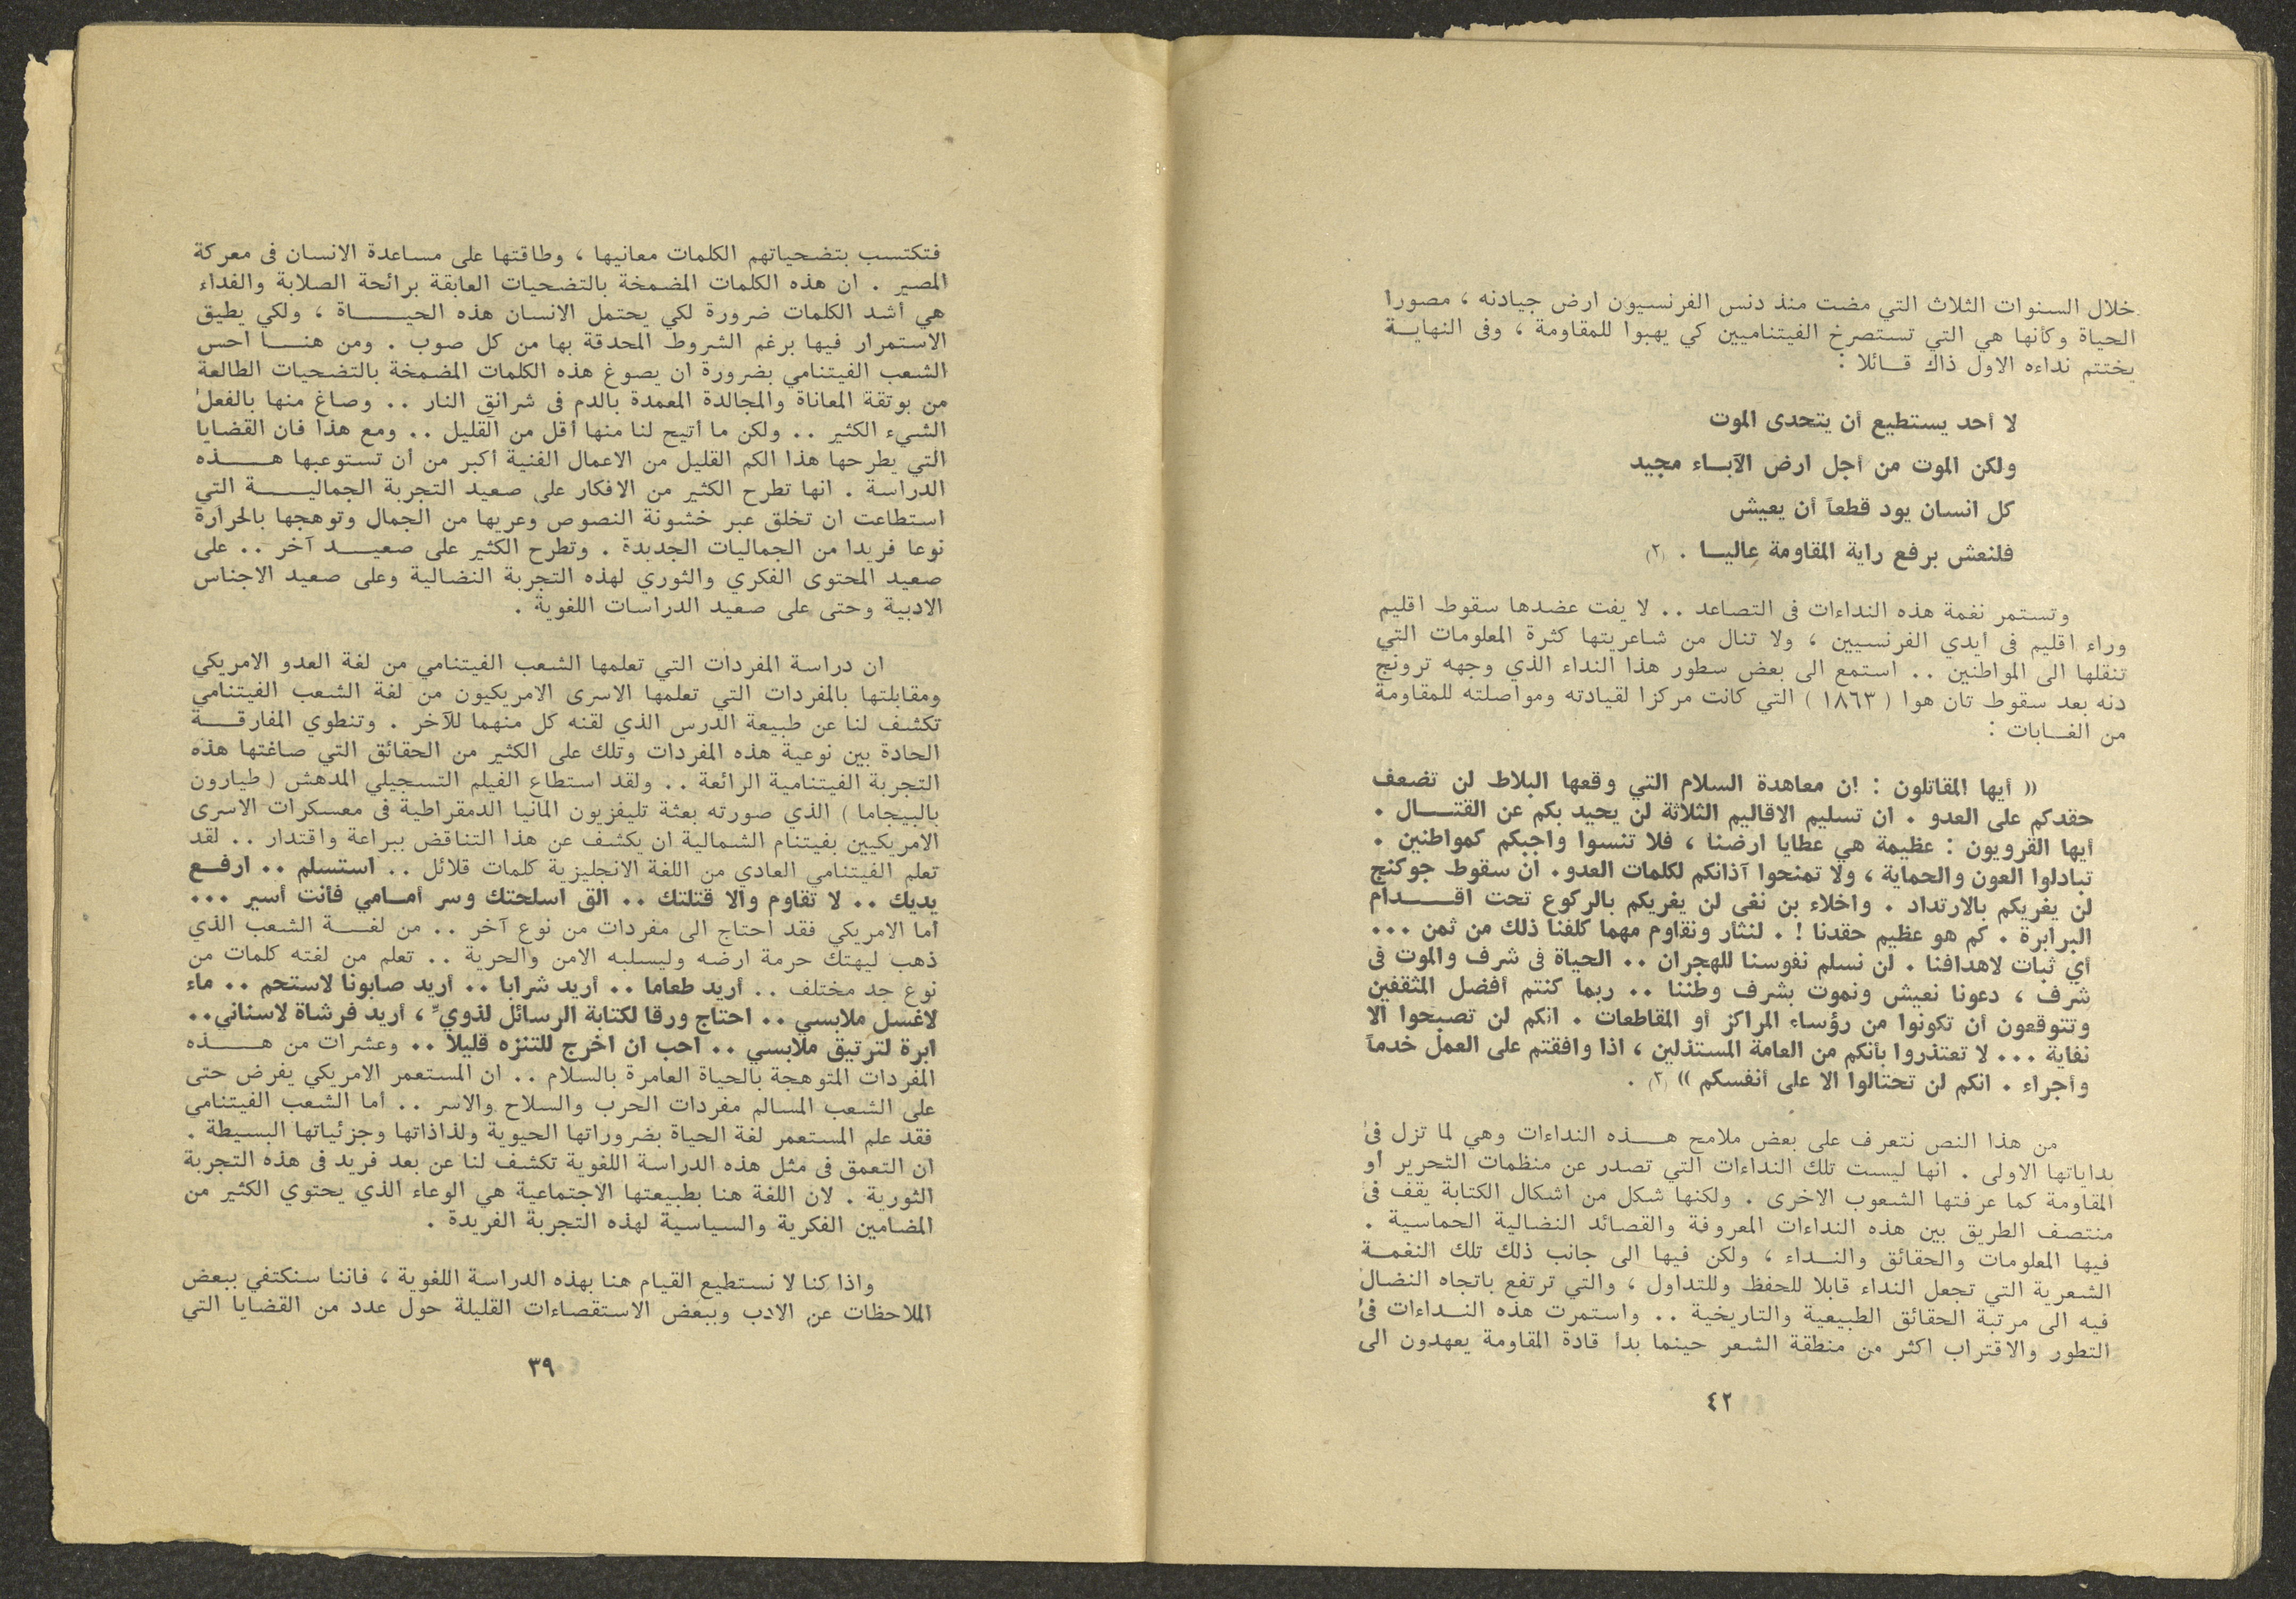 خلال السنوات الثلاث التي مضت منذ دنس الفرنسيون ارض جيادنه ، مصورا
الحياة وكأنها هي التي تستصرخ الفيتناميين كي يهبوا للمقاومة ، وفى النهايــة
يختتم نداءه الاول ذاك قــائلا :
لا أحد يستطيع أن يتحدى الموت
ولكن الموت من أجل ارض الآبــاء مجيد
كل انسان يود قطعاً أن يعيش
فلنعش برفع راية المقاومة عاليــا . (٢)
وتستمر نغمة هذه النداءات فى التصاعد .. لا يفت عضدها سقوط اقليم
وراء اقليم فى ايدي الفرنسيين ، ولا تنال من شاعريتها كثرة المعلومات التي
تنقلها الى المواطنين .. استمع الى بعض سطور هذا النداء الذي وجهه ترونج
دنه بعد سقوط تان هوا ( ١٨٦٣ ) التي كانت مركزا لقيادته ومواصلته للمقاومة
من الغــابات :
« أيها المقاتلون : ان معاهدة السلام التي وقعها البلاط لن تضعف
حقدكم على العدو . ان تسليم الاقاليم الثلاثة لن يحيد بكم عن القتــــال .
أيها القرويون : عظيمة هي عطايا ارضنا ، فلا تنسوا واجبكم كمواطنين .
تبادلوا العون والحماية ، ولا تمنحوا آذانكم لكلمات العدو. ان سقوط جوكنج
لن يغريكم بالارتداد . واخلاء بن نغى لن يغريكم بالركوع تحت اقــــدام
البرابرة . كم هو عظيم حقدنا ! . لنثأر ونقاوم مهما كلفنا ذلك من ثمن ...
أي ثبات لاهدافنا . لن نسلم نفوسنا للهجران .. الحياة فى شرف والموت فى
شرف ، دعونا نعيش ونموت بشرف وطننا .. ربما كنتم أفضل المثقفين
وتتوقعون أن تكونوا من رؤساء المراكز أو المقاطعات . انكم لن تصبحوا الا
نفاية ... لا تعتذروا بأنكم من العامة المستذلين ، اذا وافقتم على العمل خدماً
وأجراء . انكم لن تحتالوا الا على أنفسكم » (٣) .
من هذا النص نتعرف على بعض ملامح هـــذه النداءات وهي لما تزل فى
بداياتها الاولى . انها ليست تلك النداءات التي تصدر عن منظمات التحرير أو
المقاومة كما عرفتها الشعوب الاخرى . ولكنها شكل من اشكال الكتابة يقف فى
منتصف الطريق بين هذه النداءات المعروفة والقصائد النضالية الحماسية .
فيها المعلومات والحقائق والنــداء ، ولكن فيها الى جانب ذلك تلك النغمــة
الشعرية التي تجعل النداء قابلا للحفظ وللتداول ، والتي ترتفع باتجاه النضال
فيه الى مرتبة الحقائق الطبيعية والتاريخية .. واستمرت هذه النــداءات فى
التطور والاقتراب اكثر من منطقة الشعر حينما بدأ قادة المقاومة يعهدون الى
٤٢
فتكتسب بتضحياتهم الكلمات معانيها ، وطاقتها على مساعدة الانسان فى معركة
المصير . ان هذه الكلمات المضمخة بالتضحيات العابقة برائحة الصلابة والفداء
هي أشد الكلمات ضرورة لكي يحتمل الانسان هذه الحيـــــاة ، ولكي يطيق
الاستمرار فيها برغم الشروط المحدقة بها من كل صوب . ومن هنـــا احس
الشعب الفيتنامي بضرورة ان يصوغ هذه الكلمات المضمخة بالتضحيات الطالعة
من بوتقة المعاناة والمجالدة المعمدة بالدم فى شرانق النار .. وصاغ منها بالفعل
الشيء الكثير .. ولكن ما أتيح لنا منها أقل من القليل .. ومع هذا فان القضايا
التي يطرحها هذا الكم القليل من الاعمال الفنية أكبر من أن تستوعبها هـــــذه
الدراسة . انها تطرح الكثير من الافكار على صعيد التجربة الجماليــــة التي
استطاعت ان تخلق عبر خشونة النصوص وعريها من الجمال وتوهجها بالحرارة
نوعا فريدا من الجماليات الجديدة . وتطرح الكثير على صعيـــد آخر .. على
صعيد المحتوى الفكري والثوري لهذه التجربة النضالية وعلى صعيد الاجناس
الادبية وحتى على صعيد الدراسات اللغوية .
ان دراسة المفردات التي تعلمها الشعب الفيتنامي من لغة العدو الامريكي
ومقابلتها بالمفردات التي تعلمها الاسرى الامريكيون من لغة الشعب الفيتنامي
تكشف لنا عن طبيعة الدرس الذي لقنه كل منهما للآخر . وتنطوي المفارقــــة
الحادة بين نوعية هذه المفردات وتلك على الكثير من الحقائق التي صاغتها هذه
التجربة الفيتنامية الرائعة .. ولقد استطاع الفيلم التسجيلي المدهش ( طيارون
بالبيجاما ) الذي صورته بعثة تليفزيون المانيا الدمقراطية فى معسكرات الاسرى
الامريكيين بفيتنام الشمالية ان يكشف عن هذا التناقض ببراعة واقتدار .. لقد
تعلم الفيتنامي العادي من اللغة الانجليزية كلمات قلائل .. استسلم .. ارفــع
يديك .. لا تقاوم والا قتلتك .. الق اسلحتك وسر أمــامي فأنت أسير ...
أما الامريكي فقد احتاج الى مفردات من نوع آخر .. من لغـــة الشعب الذي
ذهب ليهتك حرمة ارضه وليسلبه الامن والحرية .. تعلم من لغته كلمات من
نوع جد مختلف .. أريد طعاما .. أريد شرابا .. أريد صابونا لاستحم .. ماء
لاغسل ملابسي .. احتاج ورقا لكتابة الرسائل لذويّ ، أريد فرشاة لاسناني..
ابرة لترتيق ملابسي .. احب ان اخرج للتنزه قليلا .. وعشرات من هـــــذه
المفردات المتوهجة بالحياة العامرة بالسلام .. ان المستعمر الامريكي يفرض حتى
على الشعب المسالم مفردات الحرب والسلاح والاسر .. اما الشعب الفيتنامي
فقد علم المستعمر لغة الحياة بضروراتها الحيوية ولذاذاتها وجزئياتها البسيطة .
ان التعمق فى مثل هذه الدراسة اللغوية تكشف لنا عن بعد فريد فى هذه التجربة
الثورية . لان اللغة هنا بطبيعتها الاجتماعية هي الوعاء الذي يحتوي الكثير من
المضامين الفكرية والسياسية لهذه التجربة الفريدة .
واذا كنا لا نستطيع القيام هنا بهذه الدراسة اللغوية ، فاننا سنكتفي ببعض
الملاحظات عن الادب وببعض الاستقصاءات القليلة حول عدد من القضايا التي
٣٩